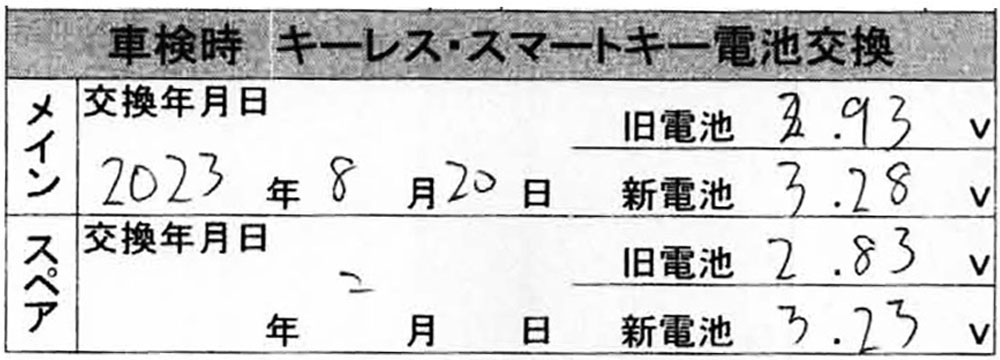 車検時 キーレス・スマートキー電池交換
メイン
交換年月日
2023年8月20日
旧電池 2.93 V
新電池 3.28 V
スペア
交換年月日
年 月 日
旧電池 2.83 V
新電池 3.23 V